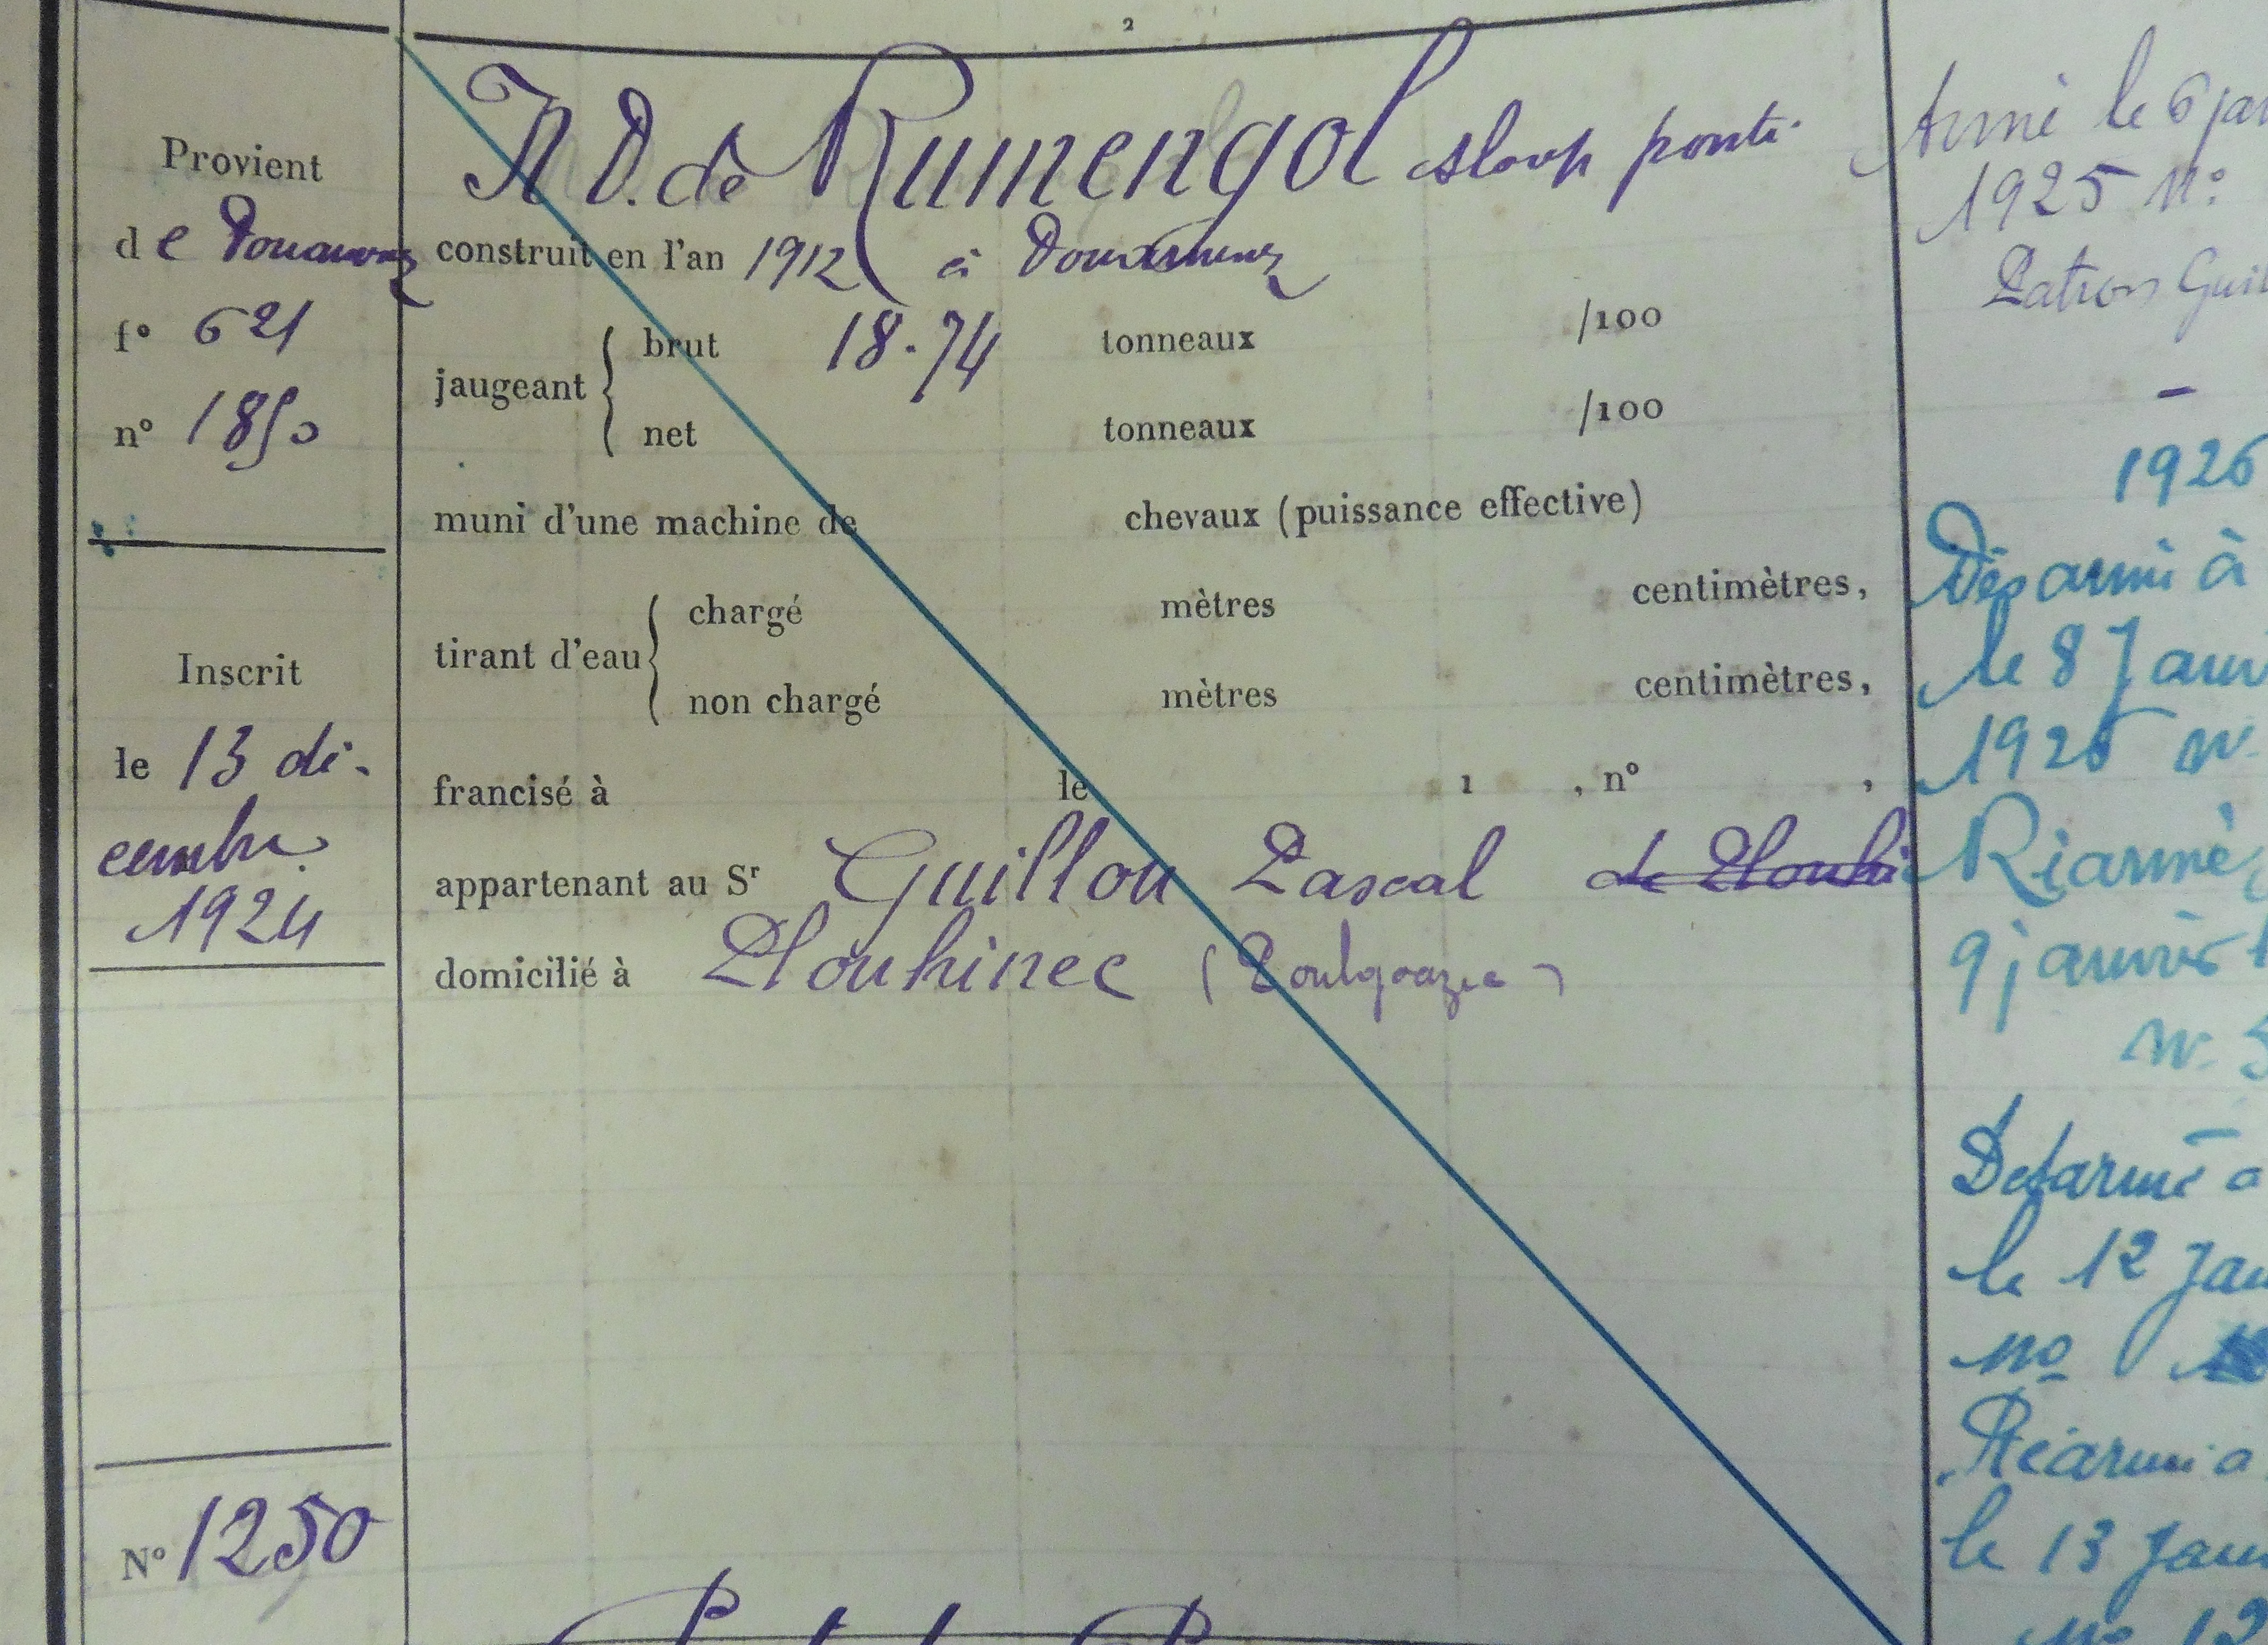 2
Provient
de Douarnenez
f° 621
n° 1850
Inscrit
le 13 dé-
cembre
1924
N° 1250
N D. de Rumengol sloop ponté
construit en l'an 1912 à Douarnenez
jaugeant { brut 18.74 tonneaux /100
net tonneaux /100
muni d'une machine de chevaux (puissance effective)
tirant d'eau { chargé mètres centimètres,
non chargé mètres centimètres,
francisé à le 1 , n° ,
appartenant au Sr Guillou Pascal de Plouhi
domicilié à Plouhinec (Poulgoazec)
Armé le 6 jan
1925 n°
Patron Guil
1926
Désarmé à
le 8 Janv
1926 n°
Réarmé
9 janvier
n° 5
Désarmé à
le 12 Jan
no
Réarmé à
le 13 Janv
No 12